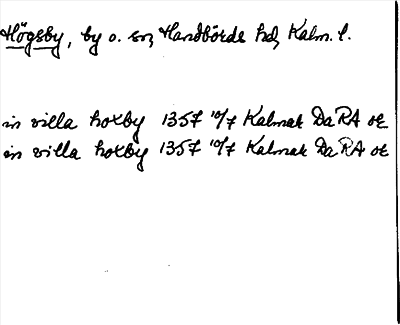 Högsby, by o. sn, Handbörds hd, Kalm. l.
in villa hoxby 1357 10/7 Kalmar Da RA or
in villa hoxby 1357 10/7 Kalmar Da RA or